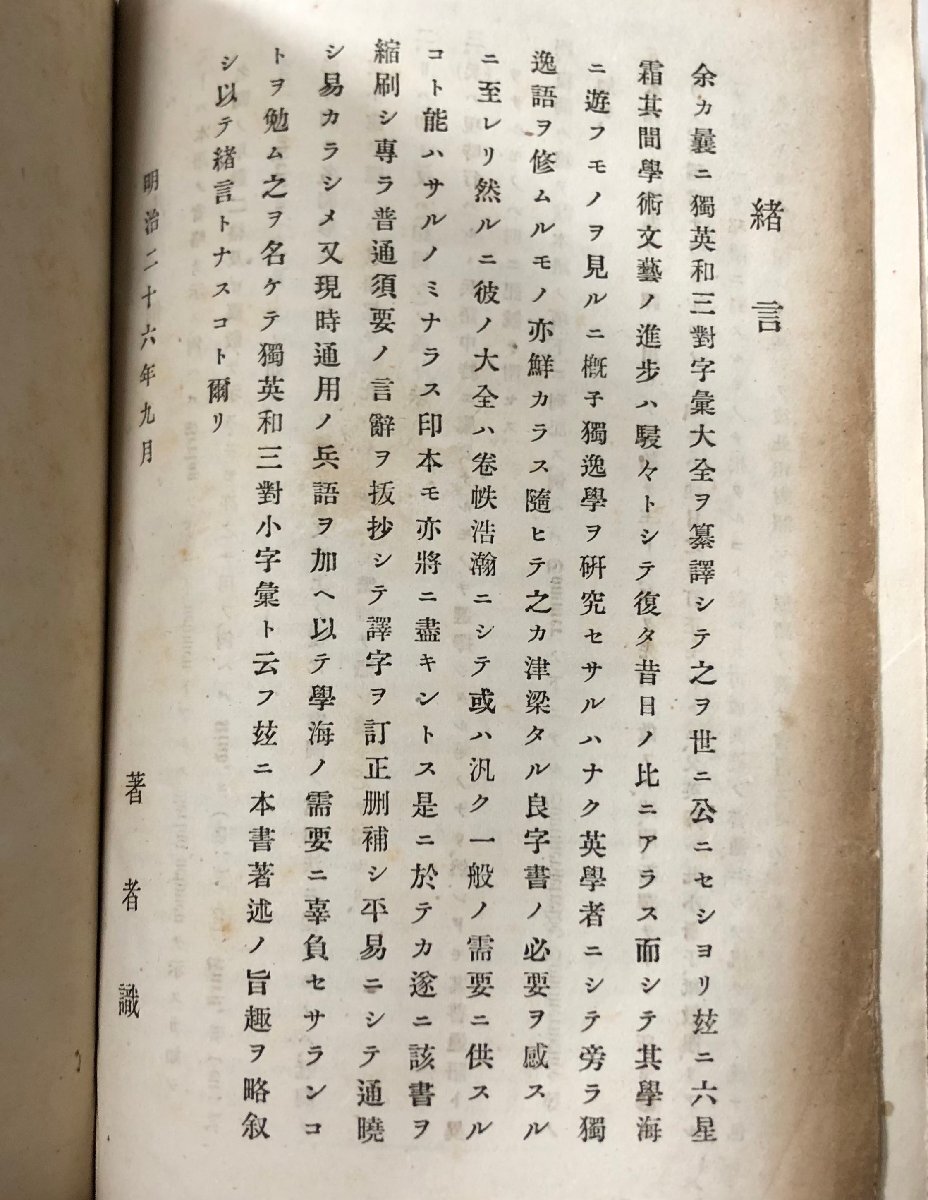 緒言
余カ曩ニ獨英和三對字彙大全ヲ纂譯シテ之ヲ世ニ公ニセシヨリ玆ニ六星
霜其間學術文藝ノ進步ハ駸々トシテ復タ昔日ノ比ニアラス而シテ其學海
ニ遊フモノヲ見ルニ槪子獨逸學ヲ硏究セサルハナク英學者ニシテ旁ラ獨
逸語ヲ修ムルモノ亦鮮カラス隨ヒテ之カ津梁タル良字書ノ必要ヲ感スル
ニ至レリ然ルニ彼ノ大全ハ卷帙浩瀚ニシテ或ハ汎ク一般ノ需要ニ供スル
コト能ハサルノミナラス印本モ亦將ニ盡キントス是ニ於テカ遂ニ該書ヲ
縮刷シ專ラ普通須要ノ言辭ヲ拔抄シテ譯字ヲ訂正刪補シ平易ニシテ通曉
シ易カラシメ又現時通用ノ兵語ヲ加ヘ以テ學海ノ需要ニ辜負セサランコ
トヲ勉ム之ヲ名ケテ獨英和三對小字彙ト云フ玆ニ本書著述ノ旨趣ヲ略叙
シ以テ緒言トナスコト爾リ
明治二十六年九月
著者識